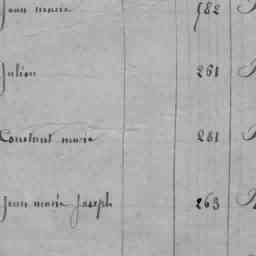 Jean marie 582
Julien 261
Constant marie 281
Jean marie Joseph 263